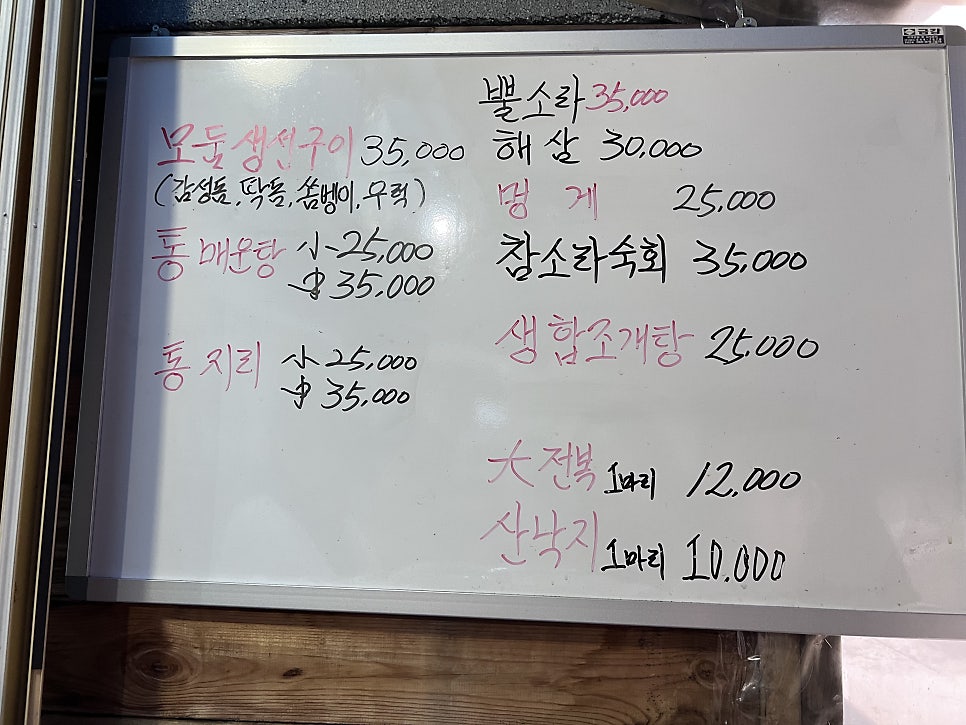 모둠생선구이 35,000
(감성돔, 딱돔, 쏨벵이, 우럭)
통 매운탕 小 25,000
中 35,000
통 지리 小 25,000
中 35,000
뿔소라 35,000
해삼 30,000
멍게 25,000
참소라숙회 35,000
생합조개탕 25,000
大전복 1마리 12,000
산낙지 1마리 10,000